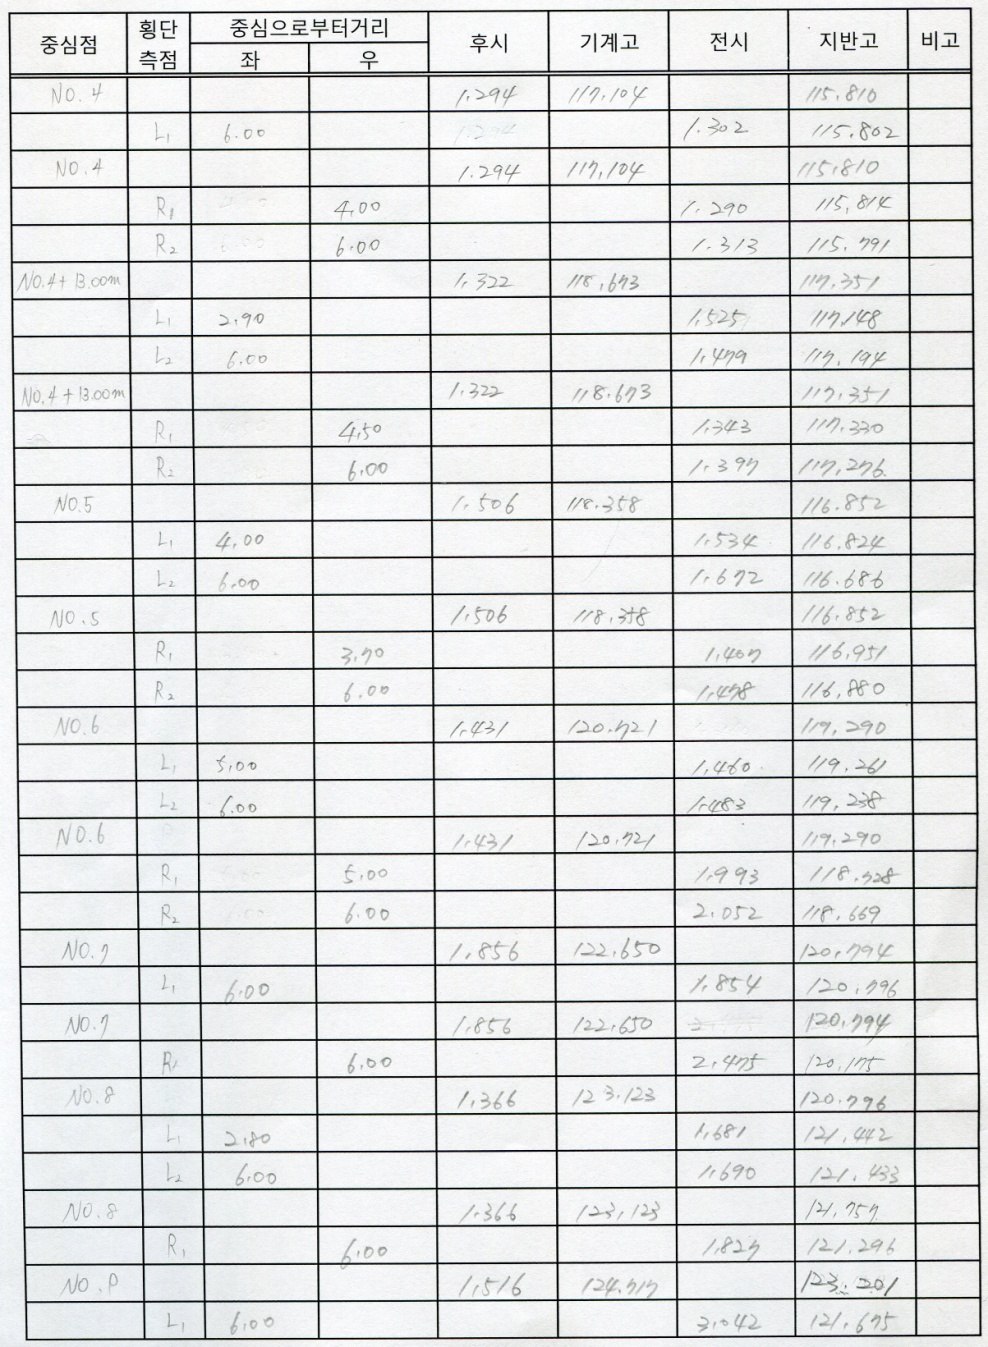 중심점 횡단 측점 중심으로부터거리 좌 우 후시 기계고 전시 지반고 비고
NO.4 1.294 117.104 115.810
L1 6.00 1.302 115.802
NO.4 1.294 117.104 115.810
R1 4.00 1.290 115.814
R2 6.00 1.313 115.791
NO.4+13.00m 1.322 118.673 117.351
L1 2.90 1.525 117.148
L2 6.00 1.479 117.194
NO.4+13.00m 1.322 118.673 117.351
R1 4.50 1.343 117.330
R2 6.00 1.397 117.276
NO.5 1.506 118.358 116.852
L1 4.00 1.534 116.824
L2 6.00 1.672 116.686
NO.5 1.506 118.358 116.852
R1 3.70 1.407 116.951
R2 6.00 1.478 116.880
NO.6 1.431 120.721 119.290
L1 5.00 1.460 119.261
L2 6.00 1.483 119.238
NO.6 1.431 120.721 119.290
R1 5.00 1.993 118.728
R2 6.00 2.052 118.669
NO.7 1.856 122.650 120.794
L1 6.00 1.854 120.796
NO.7 1.856 122.650 120.794
R1 6.00 2.475 120.175
NO.8 1.366 123.123 120.796
L1 2.80 1.681 121.442
L2 6.00 1.690 121.433
NO.8 1.366 123.123 121.757
R1 6.00 1.827 121.296
NO.P 1.516 124.717 123.201
L1 6.00 3.042 121.675